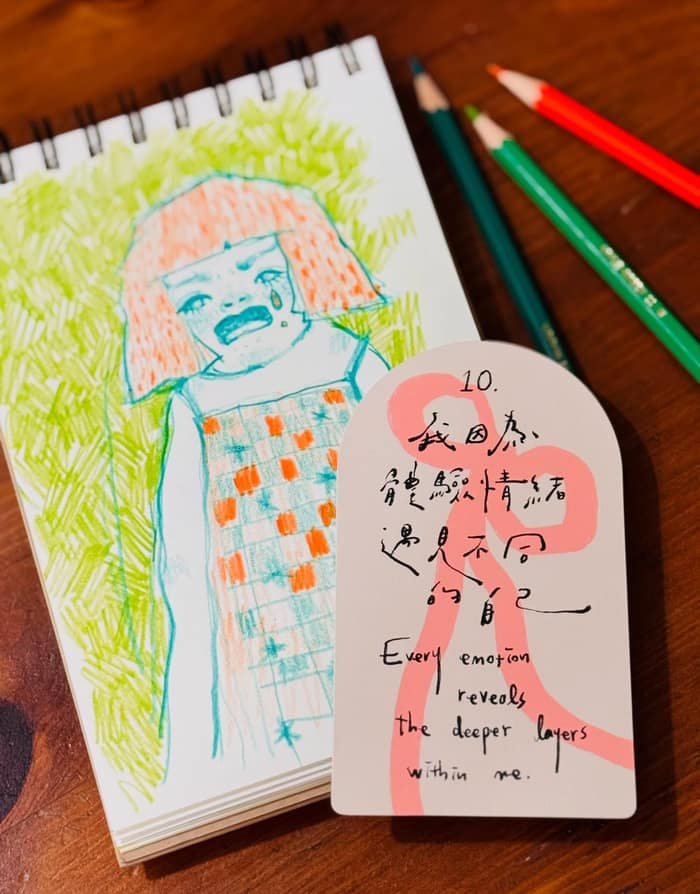 10.
我因為
體驗情緒
遇見不同
的自己
Every emotion
reveals
the deeper layers
within me.